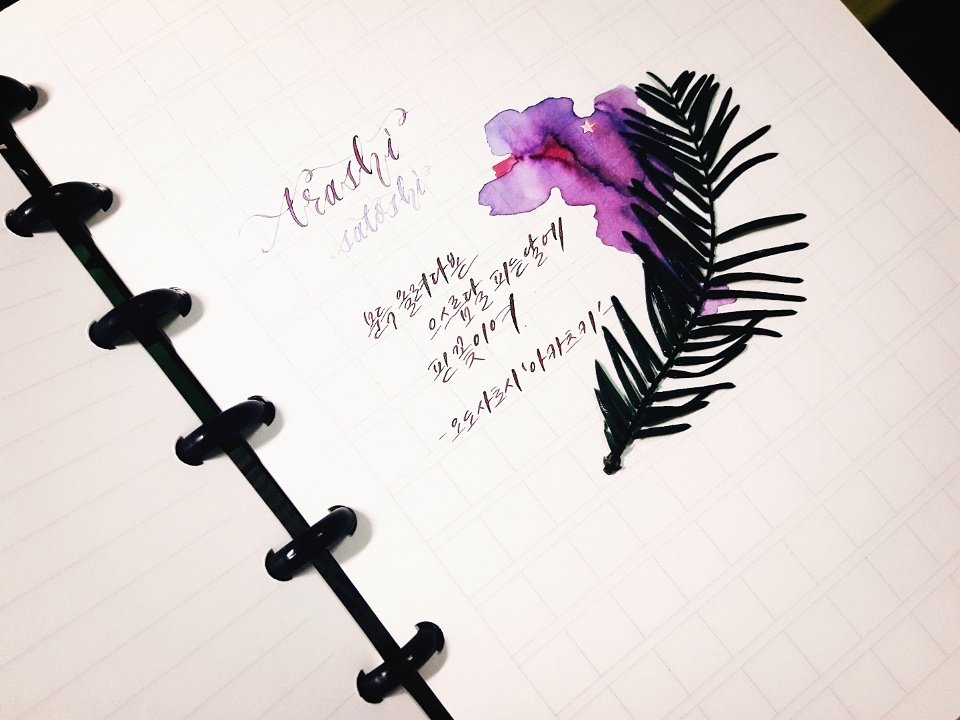 Arashi
satoshi
문득 올려다본
으스름달 피는달에
핀 꽃이여.
-오노사토시 '아카츠키'-